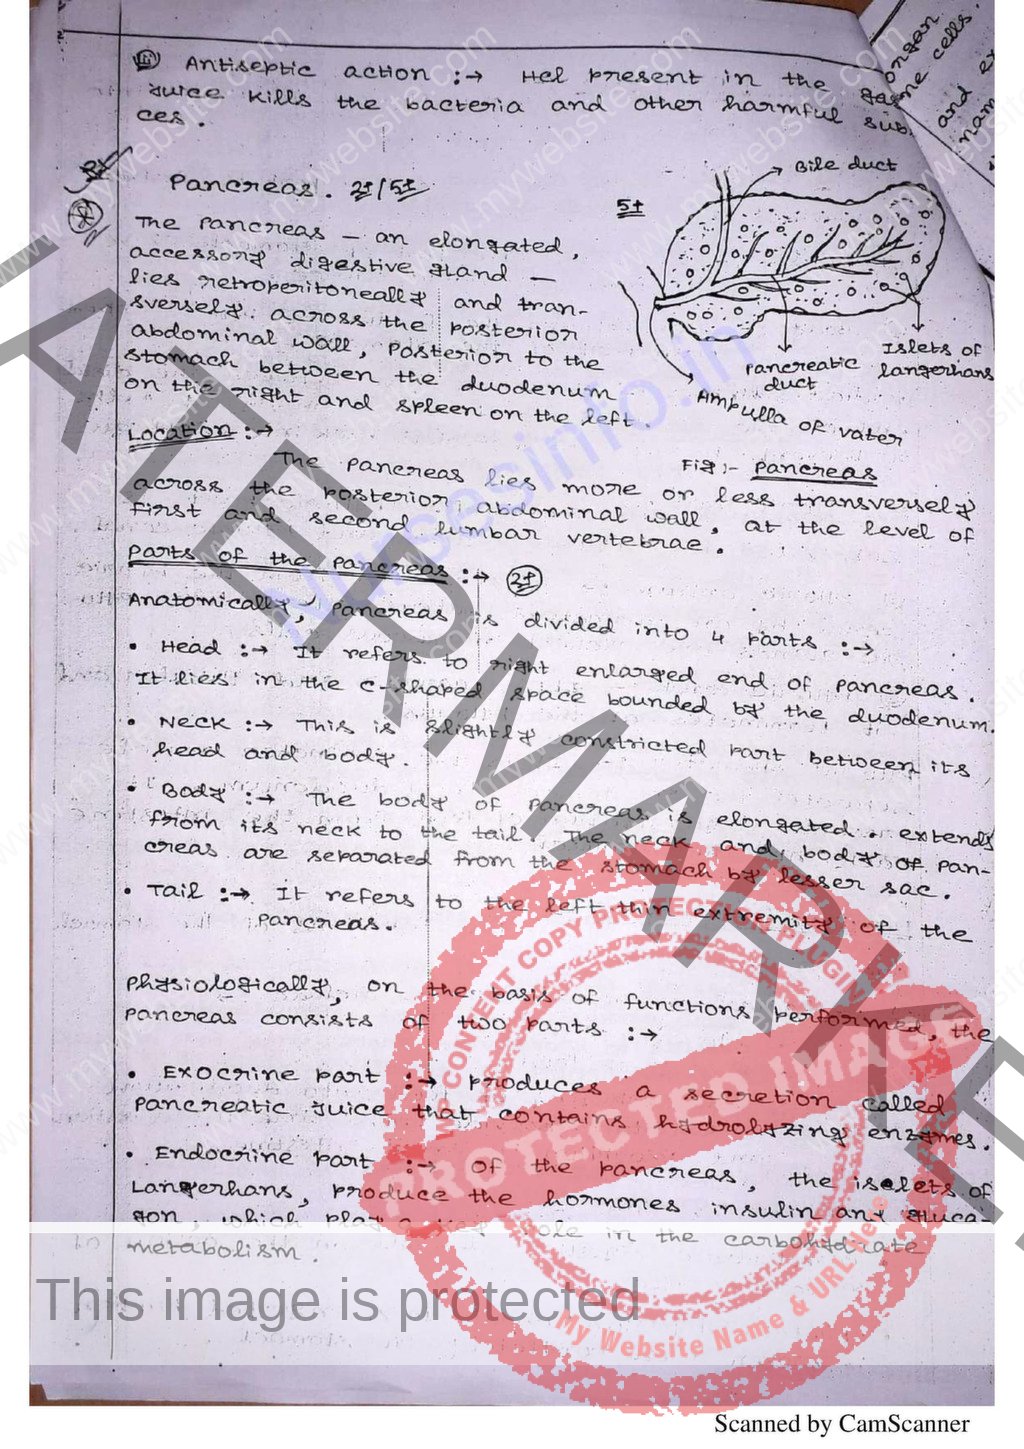 (iii) Antiseptic action :→ Hcl present in the
juice kills the bacteria and other harmful sub.
ces.
Pancreas. 2+/5+
The Pancreas – an elongated,
accessory digestive gland –
lies retroperitoneally and tran-
sversely across the posterior
abdominal wall, Posterior to the
stomach between the duodenum
on the right and spleen on the left.
5+
Bile duct
Pancreatic duct
Islets of langerhans
Ampulla of vater
Fig:- Pancreas
Location :→
The pancreas lies more or less transversely
across the posterior abdominal wall, at the level of
first and second lumbar vertebrae.
Parts of the pancreas :→ 2+
Anatomically, pancreas is divided into 4 parts :→
• Head :→ It refers to right enlarged end of pancreas.
It lies in the C-shaped space bounded by the duodenum.
• Neck :→ This is slightly constricted part between its
head and body.
• Body :→ The body of pancreas is elongated. extends
from its neck to the tail. The neck and body of pan-
creas are separated from the stomach by lesser sac.
• Tail :→ It refers to the left thin extremity of the
pancreas.
Physiologically, on the basis of functions performed, the
pancreas consists of two parts :→
• Exocrine part :→ produces a secretion called
pancreatic juice that contains hydrolyzing enzymes.
• Endocrine part :→ of the pancreas, the iselets of
Langerhans, produce the hormones insulin and gluca-
gon, which play a role in the carbohydrate
metabolism.
organ
ne cells.
and
nam
nursesinfo.in
www.mywebsite.com
LATERMARKE
WP CONTENT COPY PROTECTION PLUGIN
PROTECTED IMAGE
My Website Name & URL Here
This image is protected
Scanned by CamScanner